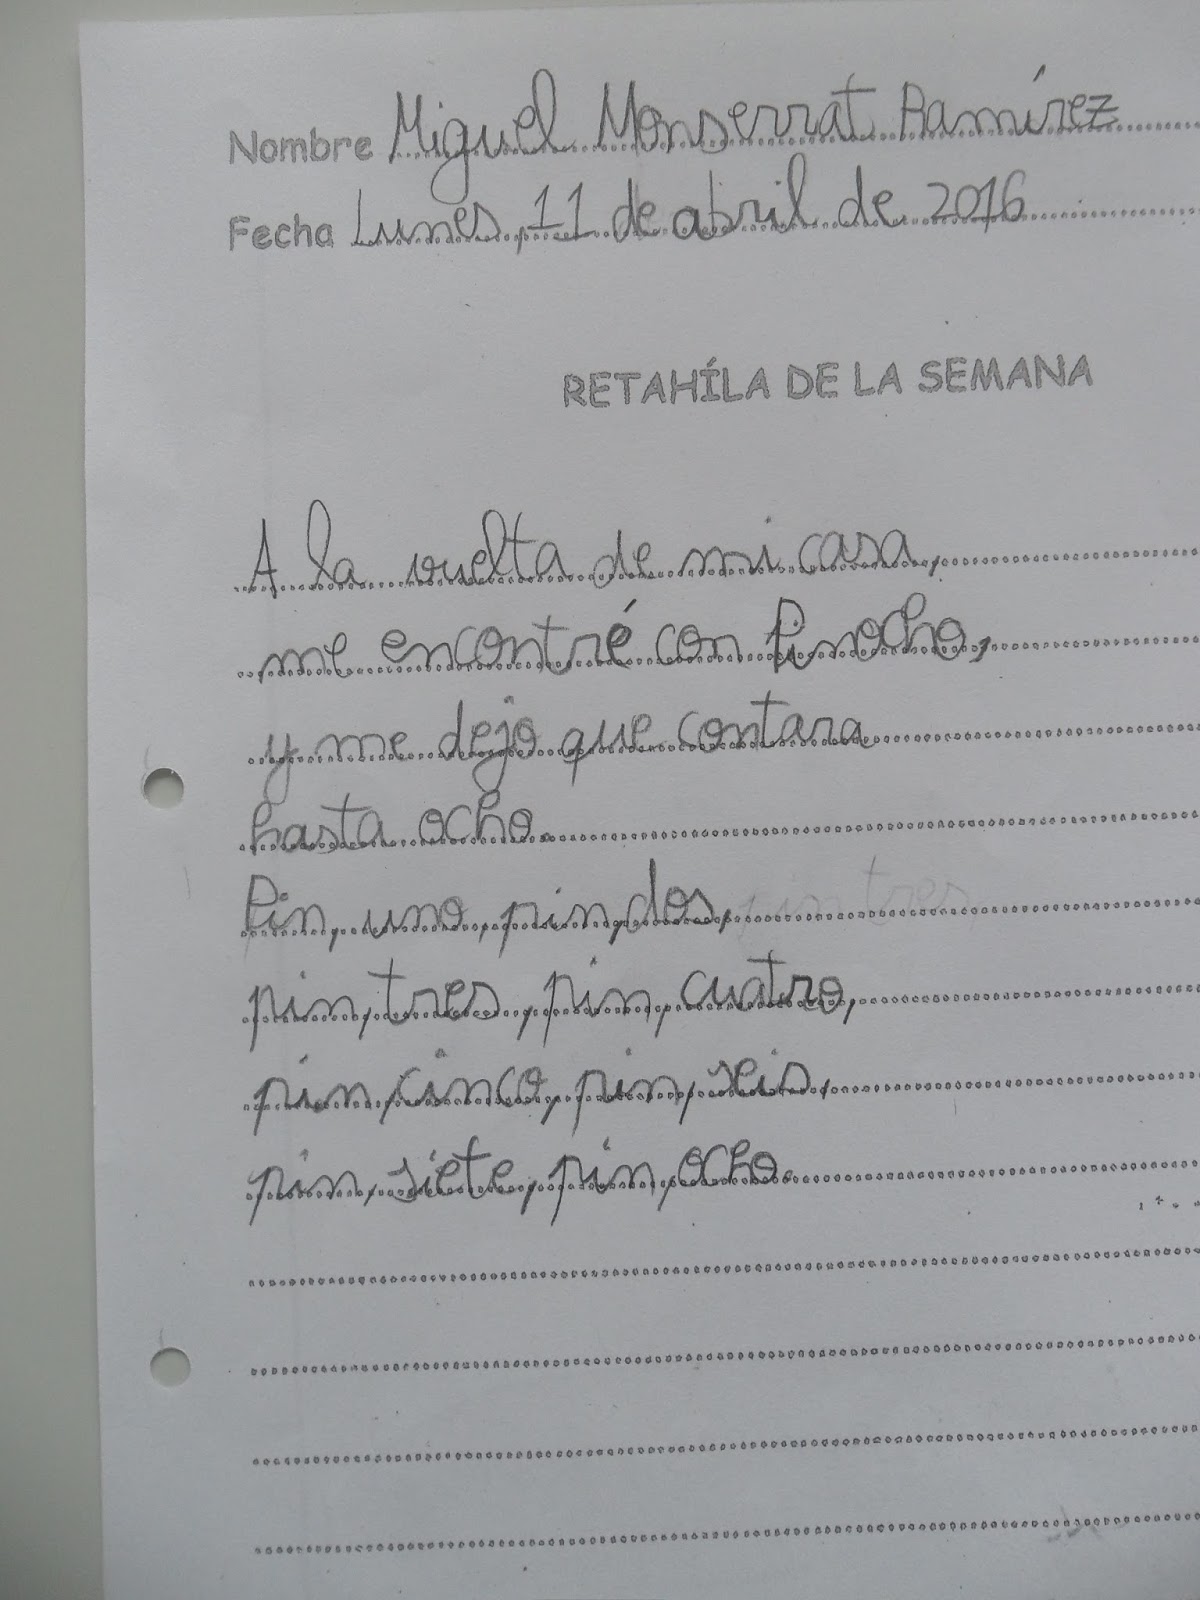 Nombre Miguel Monserrat Ramírez
Fecha Lunes, 11 de abril de 2016
RETAHÍLA DE LA SEMANA
A la vuelta de mi casa,
me encontré con Pinocho,
y me dejo que contara
hasta ocho.
Pin, uno, pin, dos, pin tres,
pin, tres, pin, cuatro,
pin, cinco, pin, seis,
pin, siete, pin, ocho.